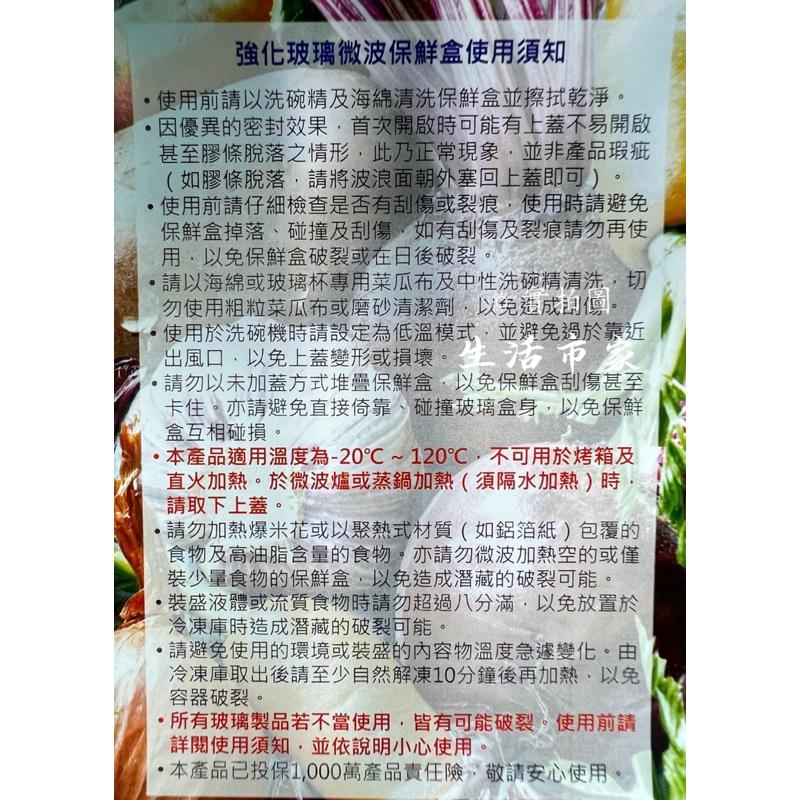 強化玻璃微波保鮮盒使用須知
•使用前請以洗碗精及海綿清洗保鮮盒並擦拭乾淨。
•因優異的密封效果，首次開啟時可能有上蓋不易開啟
甚至膠條脫落之情形，此乃正常現象，並非產品瑕疵
（如膠條脫落，請將波浪面朝外塞回上蓋即可）。
•使用前請仔細檢查是否有刮傷或裂痕，使用時請避免
保鮮盒掉落、碰撞及刮傷，如有刮傷及裂痕請勿再使
用，以免保鮮盒破裂或在日後破裂。
•請以海綿或玻璃杯專用菜瓜布及中性洗碗精清洗，切
勿使用粗粒菜瓜布或磨砂清潔劑，以免造成刮傷。
實拍圖
•使用於洗碗機時請設定為低溫模式，並避免過於靠近
出風口，以免上蓋變形或損壞。
生活市家
•請勿以未加蓋方式堆疊保鮮盒，以免保鮮盒刮傷甚至
卡住。亦請避免直接倚靠、碰撞玻璃盒身，以免保鮮
盒互相碰損。
•本產品適用溫度為-20℃ ~ 120℃，不可用於烤箱及
直火加熱。於微波爐或蒸鍋加熱（須隔水加熱）時，
請取下上蓋。
•請勿加熱爆米花或以聚熱式材質（如鋁箔紙）包覆的
食物及高油脂含量的食物。亦請勿微波加熱空的或僅
裝少量食物的保鮮盒，以免造成潛藏的破裂可能。
•裝盛液體或流質食物時請勿超過八分滿，以免放置於
冷凍庫時造成潛藏的破裂可能。
•請避免使用的環境或裝盛的內容物溫度急遽變化。由
冷凍庫取出後請至少自然解凍10分鐘後再加熱，以免
容器破裂。
•所有玻璃製品若不當使用，皆有可能破裂。使用前請
詳閱使用須知，並依說明小心使用。
•本產品已投保1,000萬產品責任險，敬請安心使用。